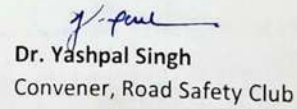 Dr. Yashpal Singh
Convener, Road Safety Club